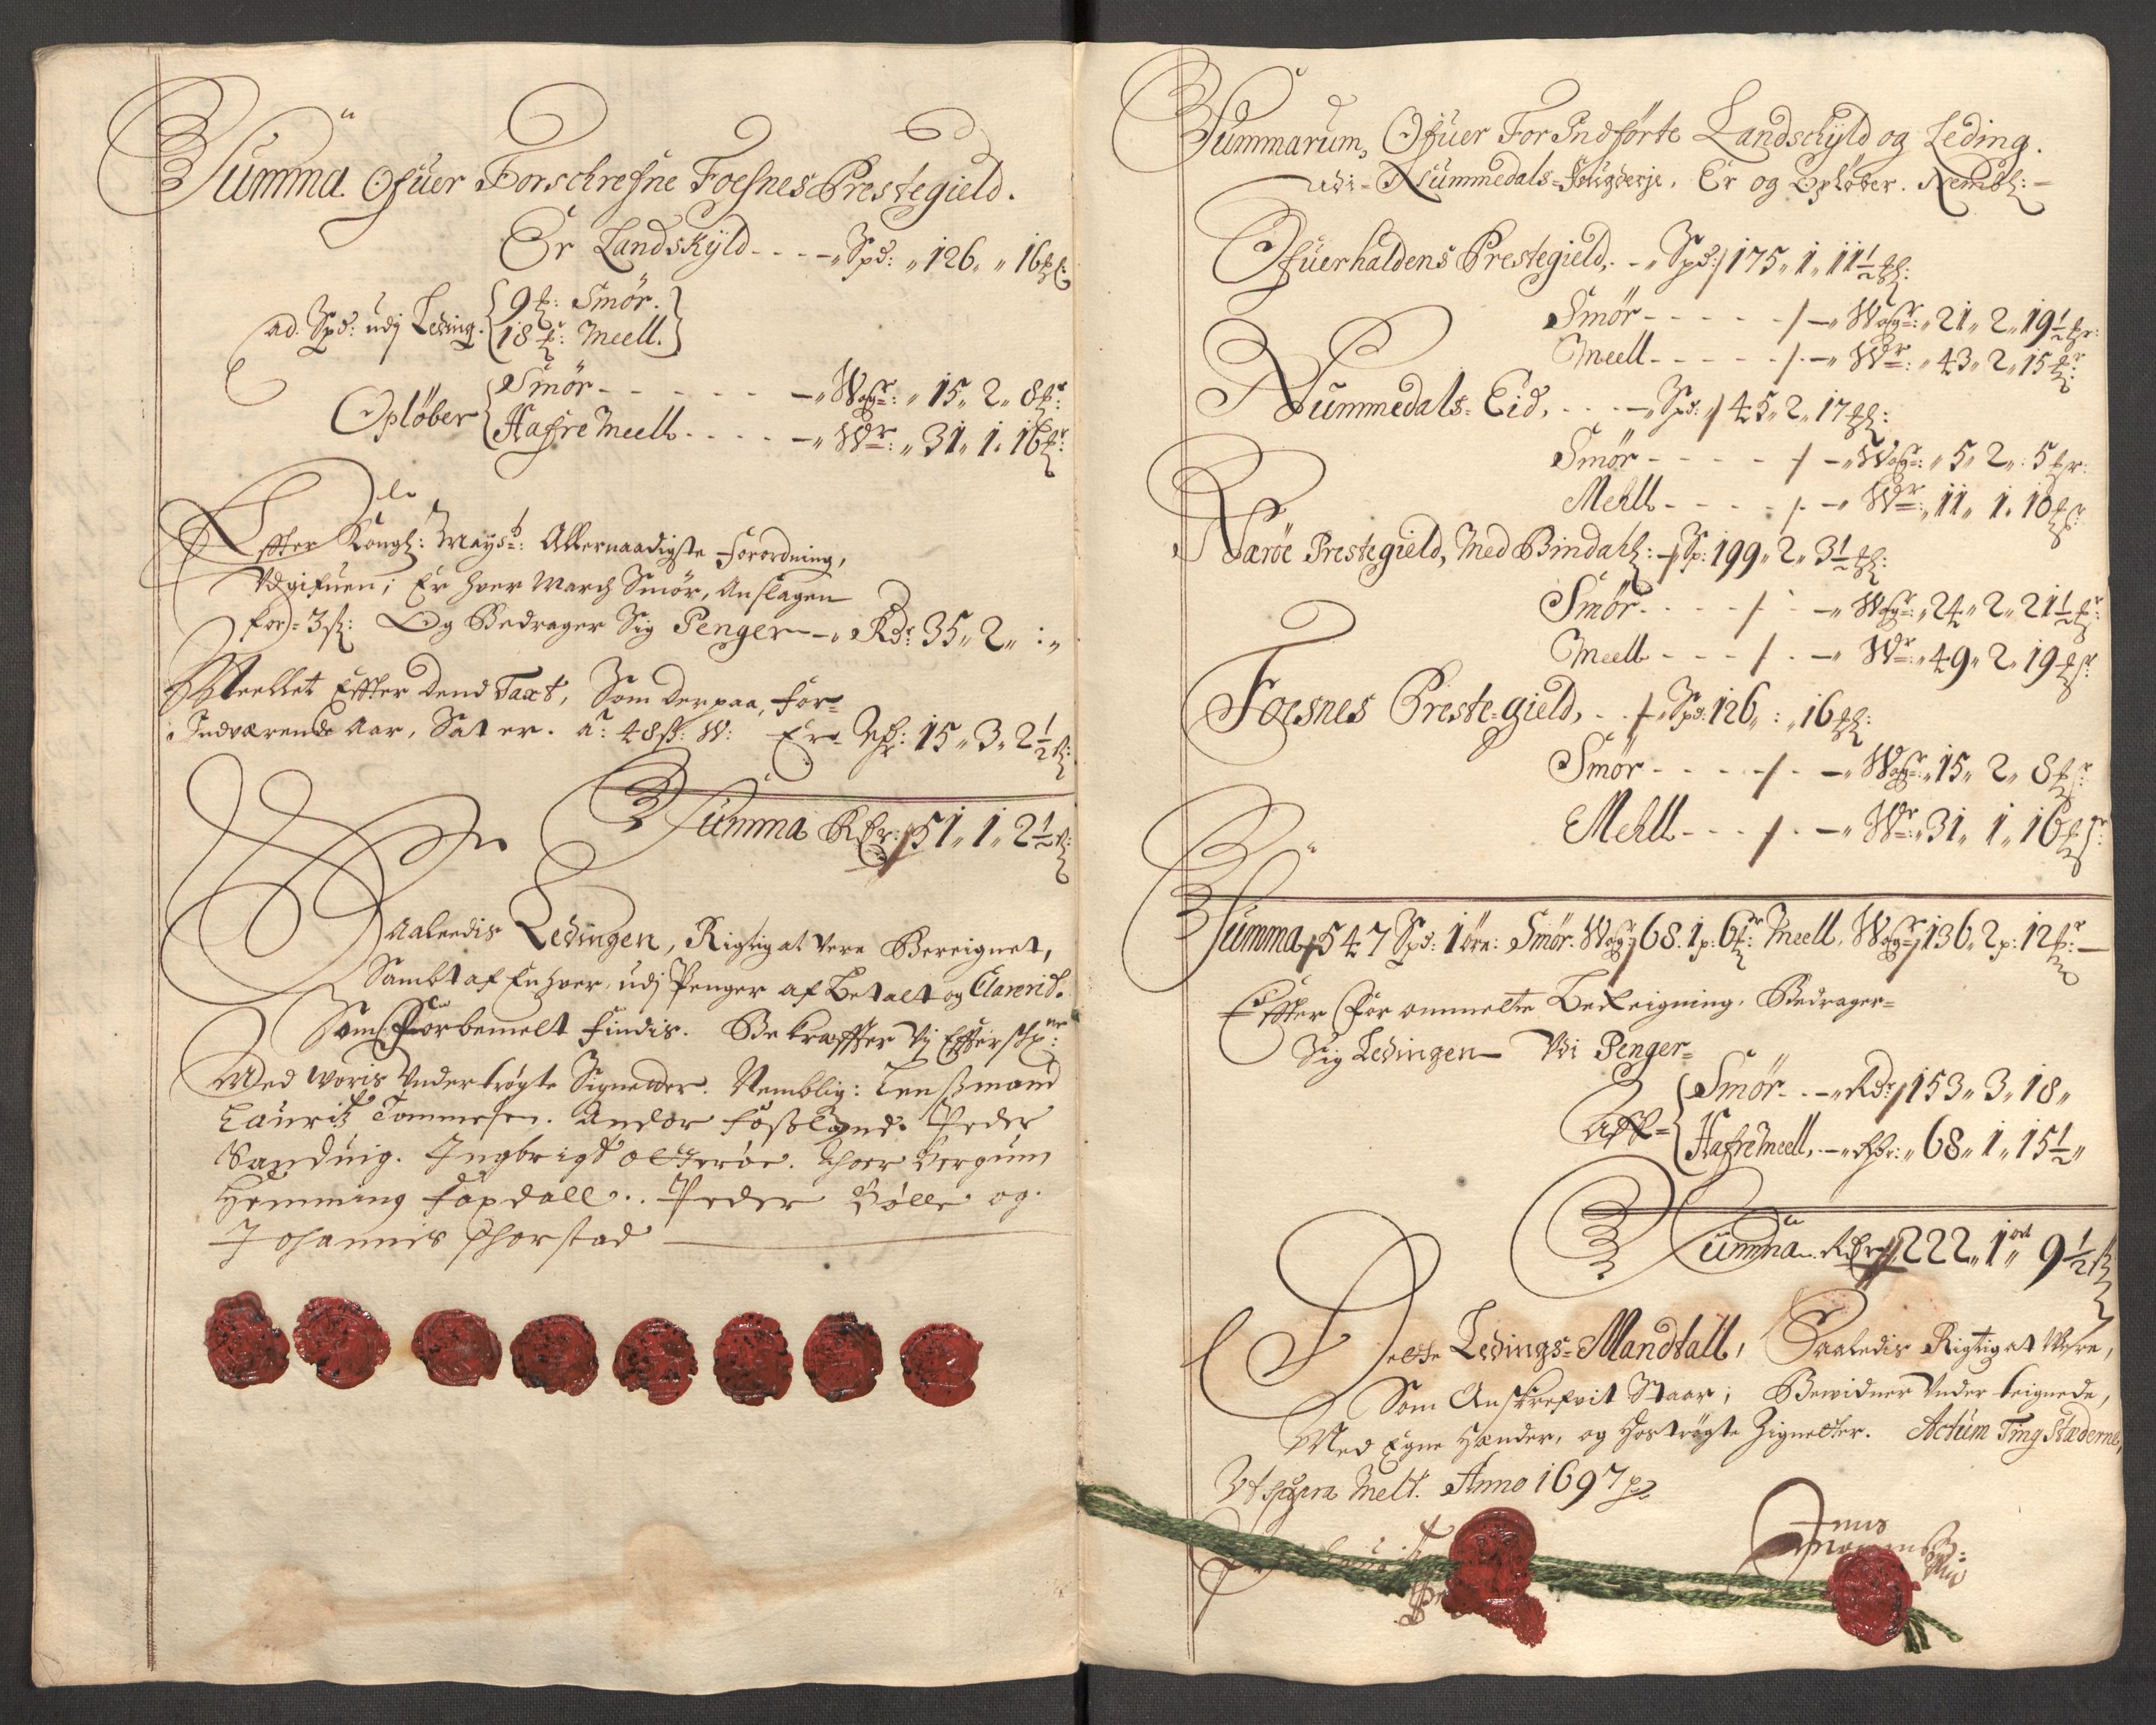 Summa Ofuer Forschrefne Foesnes Prestegield.
Er Landskyld - - - Spd: „ 126 „ „ 16 ℔:
ad. Spd: udj Leding. 9 ℔: Smör.
18 ℔: Meell.
Opløber Smör - - - - - Wogr: „ 15 „ 2 „ 8 ℔r:
Hafre Meell - - - - Wr: „ 31 „ 1 „ 16 ℔r:
Effter Kongl: Mayst: Allernaadigste Forordning,
Udgifuen; Er hver March Smör, Anslagen
for = 3 s: Og Bedrager Sig Penger - Rdr 35 „ 2 „ : „
Meellet Effter dend Taxt, Som derpaa, for-
Indværende Aar, Sat er. a: 48 s: W: Er - Rdr: 15 „ 3 „ 2½ s:
Summa Rdr: 51 „ 1 „ 2½ s:
Saaledis Ledingen, Rigtig at vere Bereignet,
Sambt af Enhver, udj Penger af Betalt og Clarerid.
Som forbemelt findis. Bekraffter Vj Effterschr:ne
Med Woris Undertrögte Signetter. Nemblig: Lensmand
Lauritz Tommesen. Andor Fosland. Peder
Sandvig. Ingbrigt Otterøe. Thoer Bergum
Hemming Faxdall. Peder Bölle og
Johannis Thorstad
Summarum, Ofuer ForIndförte Landschyld og Leding.
udi - Nummedals - Fougderje, Er og Opløber. Nembl: -
Ofuerhaldens Prestegield, - Spd: 175 „ 1 „ 11½ ℔:
Smör - - - - - Wogr: „ 21 „ 2 „ 19½ ℔r:
Meell - - - - - Wr: „ 43 „ 2 „ 15 ℔r:
Nummedals - Eid, - - - Spd: 45 „ 2 „ 17 ℔:
Smör - - - - - Wogr: „ 5 „ 2 „ 5 ℔r:
Mehll - - - - - Wr: „ 11 „ 1 „ 10 ℔r:
Nærøe Prestegield, Med Bindahl: - Sp: 199 „ 2 „ 3½ ℔:
Smör - - - - Wogr: „ 24 „ 2 „ 21½ ℔r:
Meell - - - - Wr: „ 49 „ 2 „ 19 ℔r:
Foesnes Preste-gield, - - Spd: 126 „ : „ 16 ℔:
Smör - - - - Wogr: „ 15 „ 2 „ 8 ℔r:
Mehll - - - - Wr: „ 31 „ 1 „ 16 ℔r:
Summa 547 Spd: 1 öre: Smör. Wogr 68. 1 p: 6 ℔r Meell, Wogr 136 „ 2 p: 12 ℔r: -
Effter For ommelte Bereigning. Bedrager-
Sig Ledingen - Udi Penger-
Aff = Smör - - Rdr 153 „ 3 „ 18 „
Hafre Meell, - Rdr: „ 68 „ 1 „ 15½ „
Summa Rdr 222 „ 1 ort 9½ s
Dette Ledings-Mandtall, Saaledis Rigtig at Were,
Som Anskrefvit Staar; Bewidner Under teignede,
Med Egne Hænder, og hoströgte Zignetter. Actum Tingstæderne,
Ut supra Melt. Anno 1697